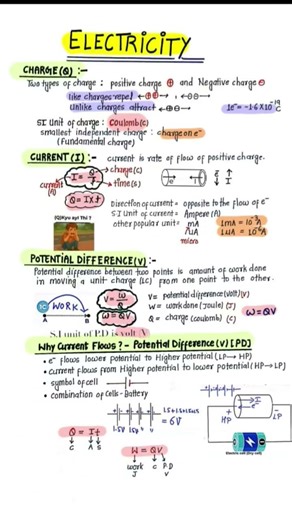 ELECTRICITY
CHARGE(Q) :-
Two types of charge : positive charge ⊕ and Negative charge ⊖
like charges repel ←⊕⊕→ , ←⊖⊖→
unlike charges attract →⊕⊖←
1e⁻= -1.6×10⁻¹⁹ C
SI Unit of charge : Coulomb(c)
smallest independent charge : charge on e⁻
(Fundamental charge)
CURRENT (I) :- current is rate of flow of positive charge.
I = Q/t
charge(c)
time(s)
current
(A)
Q = I×t
Direction of current = opposite to the flow of e⁻
S.I unit of current = Ampere (A)
other popular unit = mA
μA
micro
1mA = 10⁻³A
1μA = 10⁻⁶A
POTENTIAL DIFFERENCE(V) :-
Potential difference between two points is amount of work done
in moving a unit charge (1C) from one point to the other.
1C WORK
A B
V = W/Q
W = QV
V = potential difference (volt) (V)
W = work done (Joule) (J)
Q = charge (coulomb) (c)
W = QV
S.I unit of P.D is volt V
Why Current Flows? - Potential Difference (V) [PD]
• e⁻ flows lower potential to Higher potential (LP→HP)
• current flows from Higher potential to lower potential (HP→LP)
• symbol of cell
• combination of Cells - Battery
= 6V
HP
LP
Q = It
C A S
W = QV
work C P.D
J V